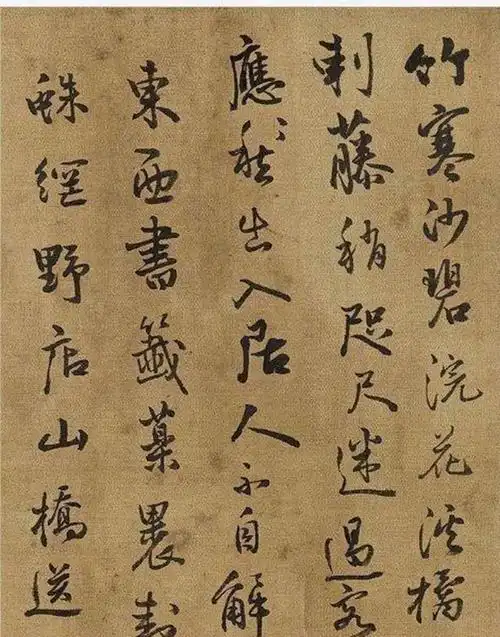 竹寒沙碧浣花溪橘
刺藤稍咫尺迷過客
應愁出入居人不自解
東西書籤藥裹封
蛛網野店山橋送